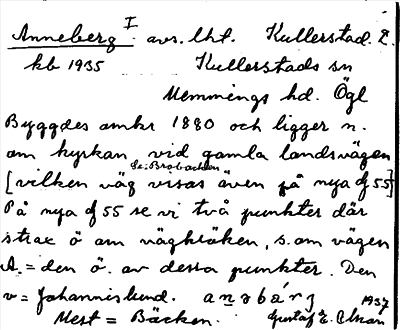 Anneberg I. avs. lht. Kullerstad. L.
kb 1935 Kullerstads sn
Memmings hd. Ögl
Byggdes omkr 1880 och ligger n.
om kyrkan vid gamla landsvägen
Se: Brobacken
[vilken väg visas även på nya df 55]
På nya df 55 se vi två punkter där
strax ö om vägkröken, s. om vägen
A. = den ö. av dessa punkter. Den
v = Johanneslund. anəbárj
Mest = Bäcken. Gustaf E. Olsson 1937